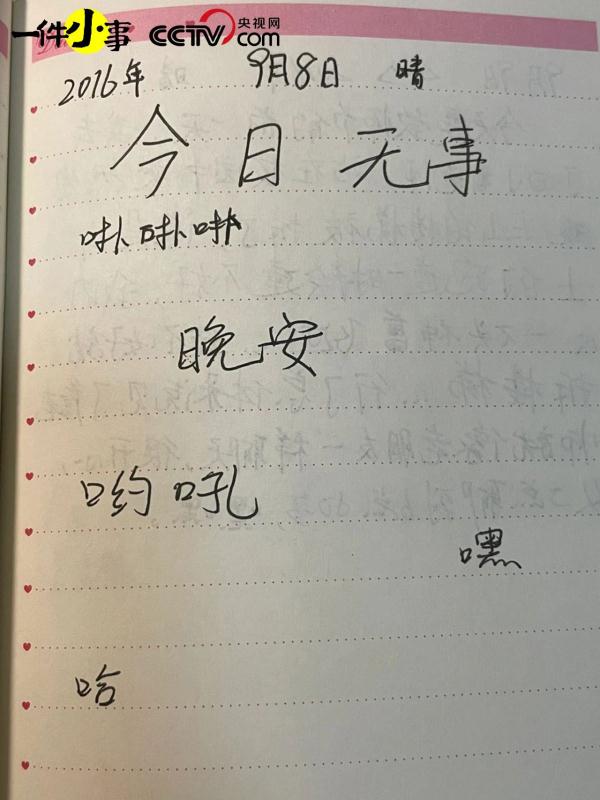 一件小事 CCTV.com 央视网
2016年 9月8日 晴
今日无事
啉啉啉
晚安
哟吼
嘿
哈